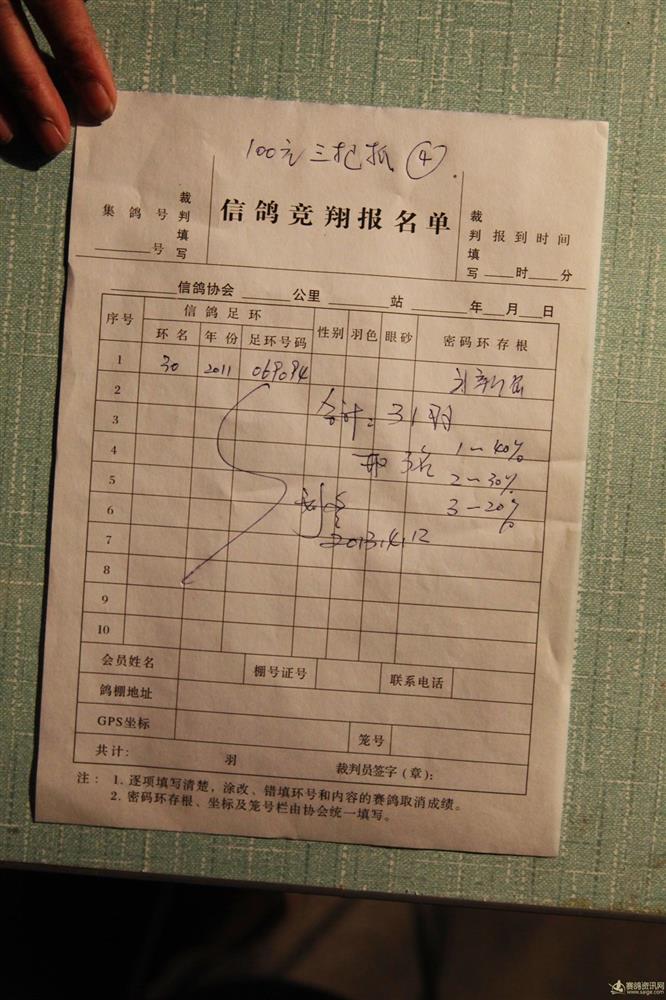 100元三把抓 ④
集鸽号
____号
裁判填写
信鸽竞翔报名单
裁判填写
报到时间
____时____分
________信鸽协会________公里________站________年____月____日
序号 信鸽足环 性别 羽色 眼砂 密码环存根
环名 年份 足环号码
1 30 2011 069094
2
3 合计：31羽
4 取3名 1－40%
5 2－30%
6 3－20%
7 2013.4.12
8
9
10
会员姓名 棚号证号 联系电话
鸽棚地址
GPS坐标 笼号
共计： 羽 裁判员签字（章）：
注：1. 逐项填写清楚，涂改、错填环号和内容的赛鸽取消成绩。
2. 密码环存根、坐标及笼号栏由协会统一填写。
赛鸽资讯网
www.saige.com